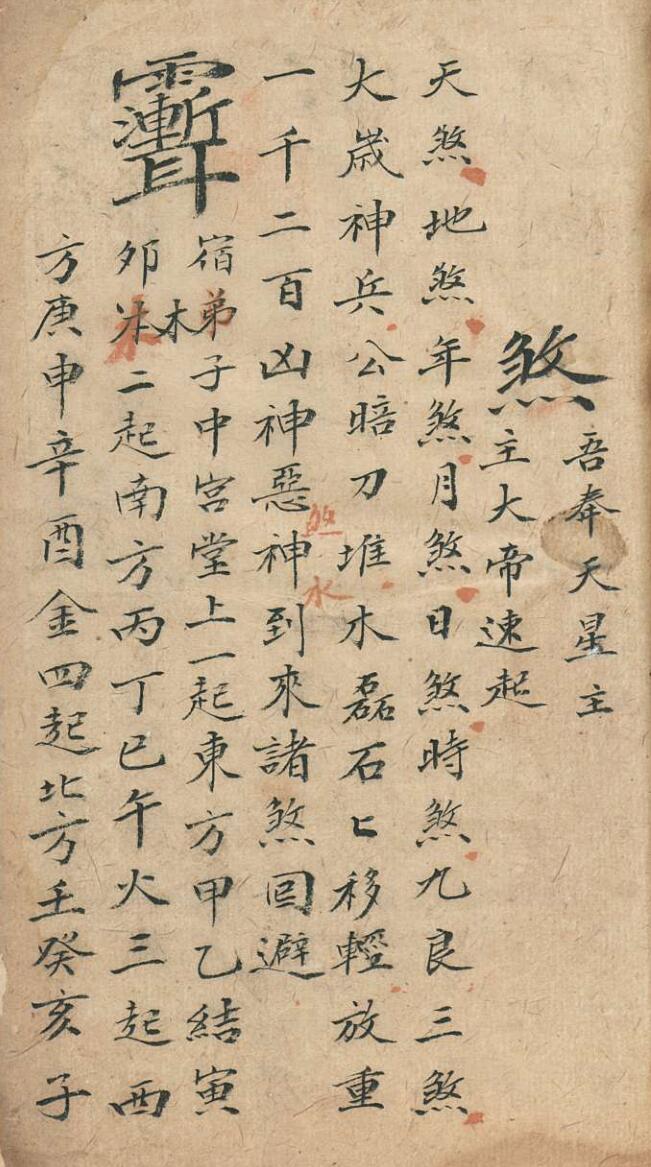 吾奉天星主
煞主大帝速起
天煞地煞年煞月煞日煞時煞九良三煞
大歲神兵公暗刀堆木磊石匕移輕放重
一千二百凶神惡神到來諸煞回避
煞水
宿弟子中宮堂上一起東方甲乙結寅
卯木二起南方丙丁巳午火三起西
方庚申辛酉金四起北方壬癸亥子